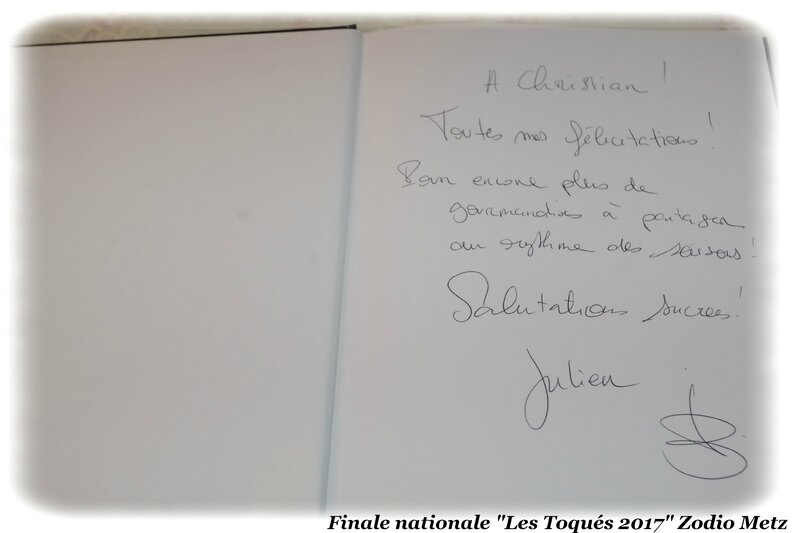 A Christian !
Toutes mes félicitations !
Pour encore plus de
gourmandises à partager
au rythme des saisons !
Salutations sucrées !
Julien
Finale nationale "Les Toqués 2017" Zodio Metz